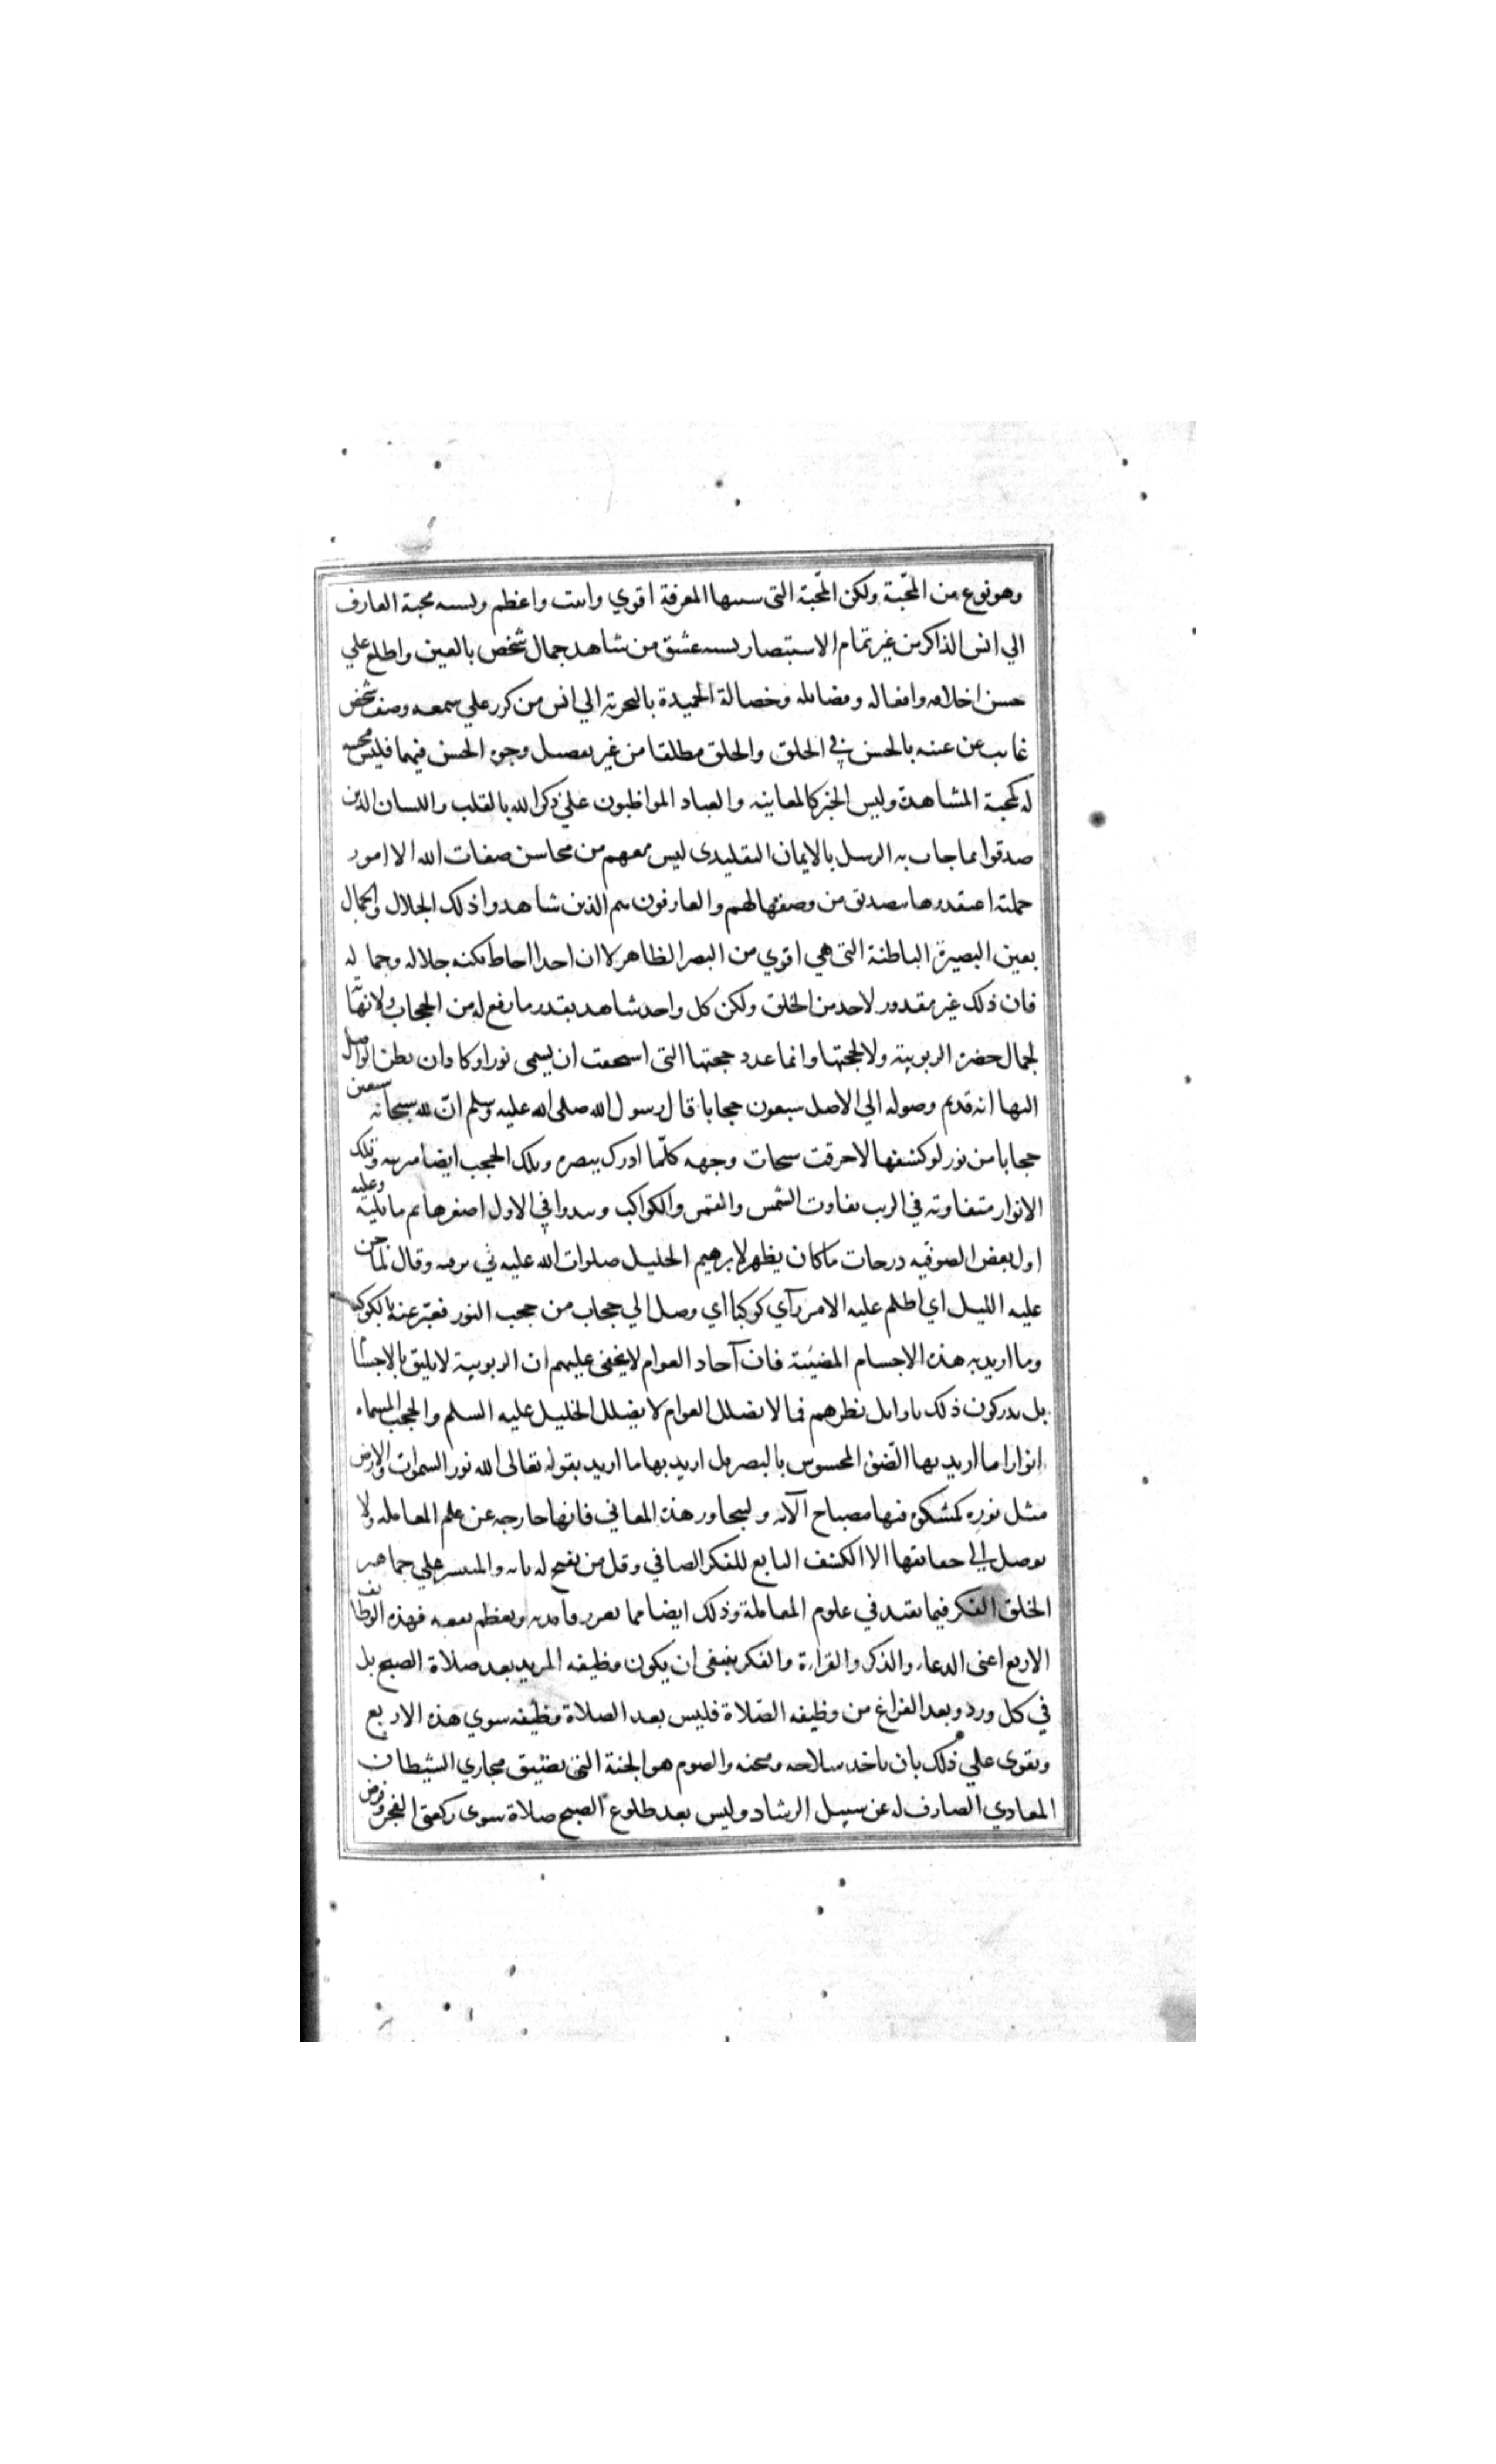 وهو نوع من المحبّة ولكن المحبّة التى سببها المعرفة اقوي واثبت واعظم ونسبه محبة العارف
الي انس الذاكر من غير تمام الاستبصار نسبه عشق من شاهد جمال شخص بالعين واطلع علي
حسن اخلاقه وافعاله وفضائله وخصاله الحميدة بالتجربة الي انس من كرر علي سمعه وصف شخص
غائب عن عينه بالحسن في الخلق والخلق مطلقا من غير تفصيل وجوه الحسن فيهما فليس محبته
له كمحبة المشاهدة وليس الخبر كالمعاينه والعباد المواظبون علي ذكر الله بالقلب واللسان الذين
صدقوا بما جاءت به الرسل بالايمان التقليدى ليس معهم من محاسن صفات الله الا امور
جملته اعتقدوها بتصديق من وصفها لهم والعارفون هم الذين شاهدوا ذلك الجلال والجمال
بعين البصيرة الباطنة التى هي اقوي من البصر الظاهر لا ان احدا احاط بكنه جلاله وجماله
فان ذلك غير مقدور لاحد من الخلق ولكن كل واحد شاهد بقدر ما رفع له من الحجاب ولا نهاية
لجمال حضرة الربوبية ولا لحجتها وانما عدد حجتها التى استحقت ان يسمى نورا وكاد ان يظن الواصل
اليها انه قد تم وصوله الي الاصل سبعون حجابا قال رسول الله صلى الله عليه وسلم ان لله سبحانه سبعين
حجابا من نور لو كشفها لاحرقت سبحات وجهه كلّما ادرك ببصره وتلك الحجب ايضا مترتبه وتلك
الانوار متفاوته في الرتب تفاوت الشمس والقمر والكواكب ويبدوا في الاول اصغرها ثم ما يليه وعليه
اول بعض الصوفيه درجات ما كان يظهر لابرهيم الخليل صلوات الله عليه في ترقيه وقال لما جن
عليه الليل اي اظلم عليه الامر رآي كوكبا اي وصل الي حجاب من حجب النور فعبّر عنه بالكوكب
وما اريد به هذه الاجسام المضيئة فان آحاد العوام لا يخفى عليهم ان الربوبية لا يليق بالاجسام
بل يدركون ذلك باوايل نظرهم فما لا يضلل العوام لا يضلل الخليل عليه السلم والحجب المسماه
انوارا ما اريد بها الضوء المحسوس بالبصر بل اريد بها ما اريد بقوله تعالى الله نور السموات والارض
مثل نوره كمشكوة فيها مصباح الآيه ولنجاوز هذه المعاني فانها خارجه عن علم المعامله ولا
يوصل الي حقائقها الا الكشف التابع للفكر الصافي وقل من ينفتح له بابه والمتيسر علي جماهير
الخلق الفكر فيما يفيد في علوم المعاملة وذلك ايضا مما تغزر فايدته ويعظم نفعه فهذه الوظائف
الاربع اعنى الدعاء والذكر والقراءة والفكر ينبغى ان يكون وظيفه المريد بعد صلاة الصبح بل
في كل ورد وبعد الفراغ من وظيفه الصّلاة فليس بعد الصلاة وظيفه سوي هذه الاربع
ويقوى علي ذلك بان ياخذ سلاحه ومجنه والصوم هو الجنة التى تضيق مجاري الشيطان
المعادي الصارف له عن سبيل الرشاد وليس بعد طلوع الصبح صلاة سوى ركعتى الفجر وفرض